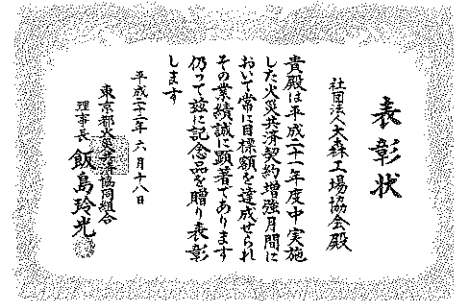 表彰状
社団法人大森工場協会殿
貴殿は平成二十一年度中実施
した火災共済契約増強月間に
おいて常に目標額を達成せられ
その業績誠に顕著であります
仍って茲に記念品を贈り表彰
します
平成二十二年六月十八日
東京都火災共済協同組合
理事長 飯島玲光